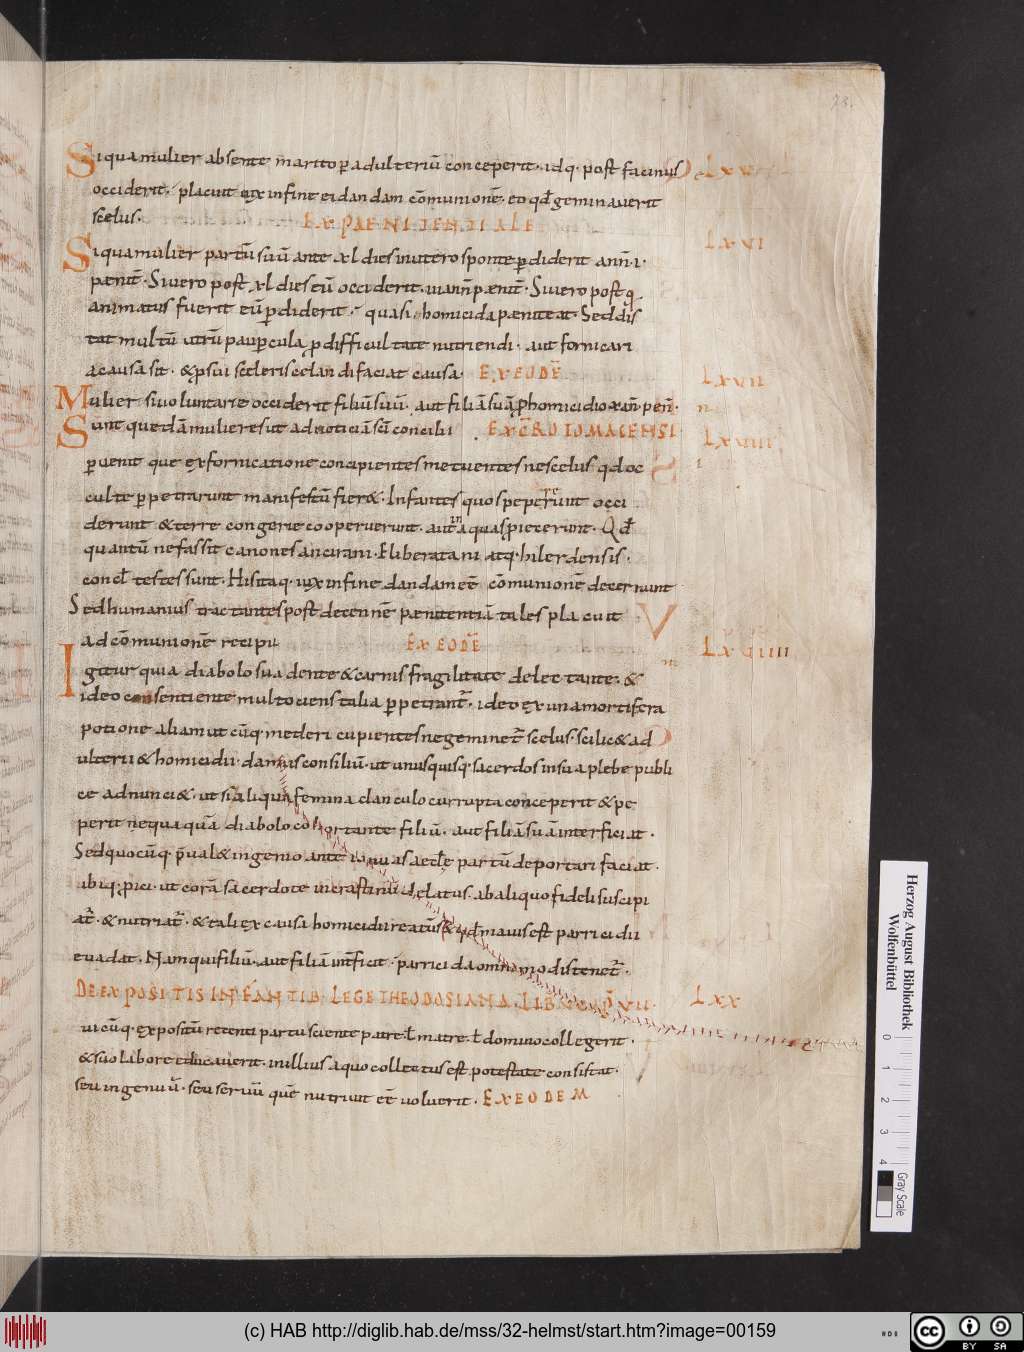 78.
Si qua mulier absente marito ꝑ adulteriū conceperit. idq. post facinus LXV
occiderit. placuit uix in fine ei dandam cōmunionē. eo qđ geminauerit
scelus. EX PAENITENTIALE
Si qua mulier partū suū ante xl dies in utero sponte ꝑdiderit ann. i. LXVI
pænit̄. Si uero post xl dies eū occiderit. iii ann̄ pænit̄. Si uero post q̄
animatus fuerit eū ꝑdiderit. quasi homicida pæniteat. Sed dis
tat multū utrū pauꝑcula ꝓ difficultate nutriendi. aut fornicari
a causa sit. & ꝓ sui sceleris celandi faciat causa. EX EODĒ LXVII
Mulier si uoluntarie occiderit filiū suū. aut filiā suā ꝓ homicidio x an̄. pen̄.
Sunt quedā mulieres ut ad noticiā sc̄i concilii EX CR̄O LOMACENSI LXVIII
ꝑuenit que ex fornicatione concipientes metuentes ne scelus qd oc
culte ꝑpetrarunt manifestū fier&. Infantes quos pepererunt occi
derunt & terre congerie cooperuerunt. aut in aquas ꝓiecerunt. Qđ
quantū nefas sit canones ancirani. Eliberatani atq. hilerdensis.
concl̄ testes sunt. His itaq. uix in fine dandam eē cōmunionē decernunt
Sed humanius tractantes post decennē pænitentiā tales placuit
ad cōmunionē recipi EX EODĒ LXVIIII
Igitur quia diabolo suadente & carnis fragilitate delectante. &
ideo consentiente multociens talia ꝑpetrant̄. ideo ex una mortifera
potione aliam utcūq. mederi cupientes ne geminet̄ scelus. scilic& ad
ulterii & homicidii. damus consiliū. ut unusquisq. sacerdos in sua plebe publi
ce adnunci&. ut si aliqua femina clanculo corrupta conceperit & pe
perit nequaquā diabolo cohortante filiū. aut filiā suā interficiat.
Sed quocūq. p̄ual& ingenio ante ianuas aecl̄e partū deportari faciat.
ibiq. ꝓici. ut corā sacerdote in crastinū delatus. ab aliquo fideli suscipi
at̄. & nutriat̄. & tali ex causa homicidii reatū & qd maius est parricidii
euadat. Nam qui filiū. aut filiā int̄ficit. parricida omnimodis tenet̄.
DE EXPOSITIS INFANTIB. LEGE THEODOSIANA. LXX
uicūq. expositū recenti partu sciente patre. ł matre. ł domino collegerit.
& suo labore educauerit. in illius a quo collectus est potestate consistat.
seu ingenuū. seu seruū quē nutriuit eē uoluerit. EX EODEM
Herzog August Bibliothek
Wolfenbüttel
0 1 2 3 4
Gray Scale
(c) HAB http://diglib.hab.de/mss/32-helmst/start.htm?image=00159
cc BY SA